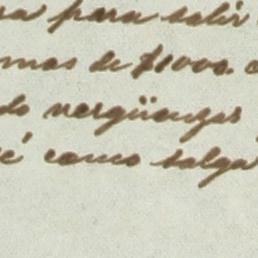 para salir
mas de $1000.
vergüenzas
como salga